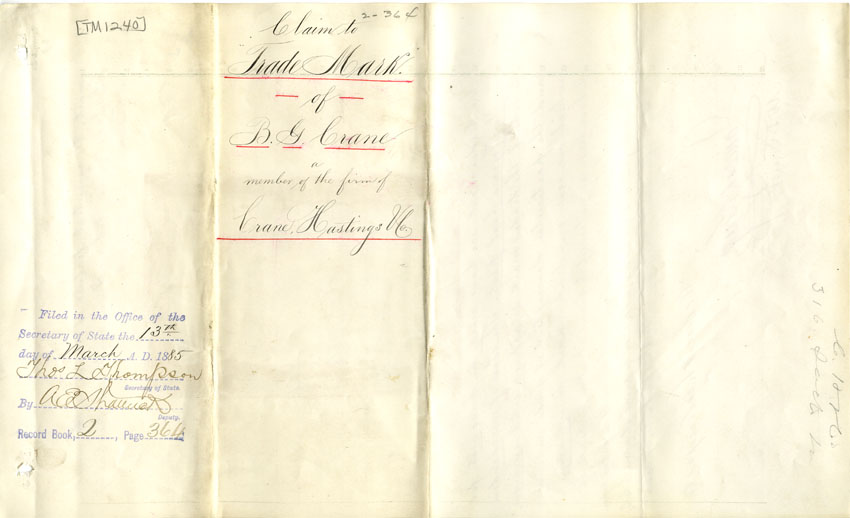 [TM1240]
2-364
Claim to
"Trade Mark."
of
B. G. Crane
a
member of the firm of
Crane, Hastings & Co
Filed in the Office of the
Secretary of State the 13th
day of March A. D. 1885
Thos L Thompson
Secretary of State.
By
Deputy.
Record Book, 2, Page 364
C. H. & Co
316 Sack